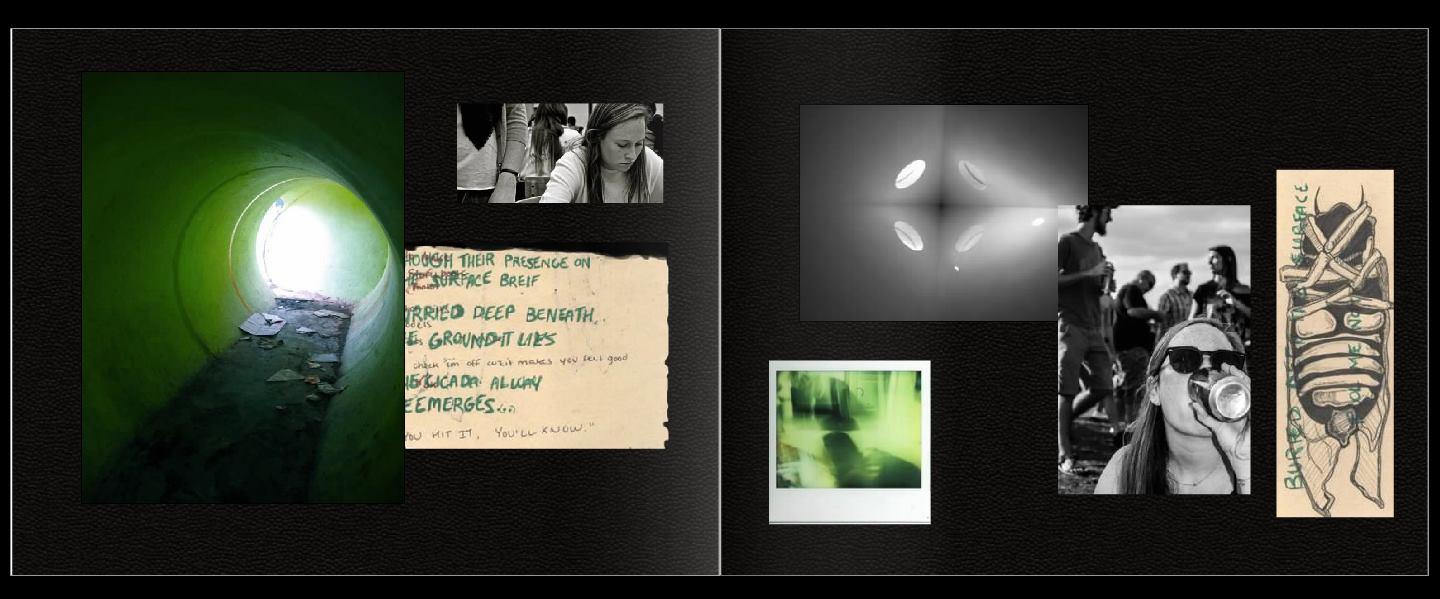 HOUGH THEIR PRESENCE ON
SURFACE BREIF
URRIED DEEP BENEATH
E GROUND IT LIES
check 'em off cuz it makes you feel good
HE CICADA ALWAY
EEMERGES...
YOU HIT IT, YOU'LL KNOW."
BURIED SURFACE
YOU ME NO